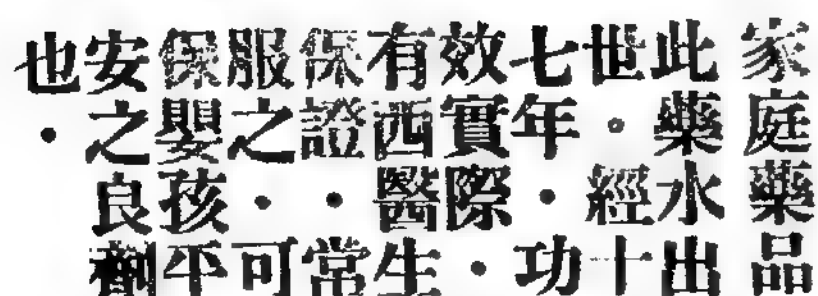 家庭藥品
此藥水出
世。經十
七年・功
效實際・
有西醫生
保證・常
服之・可
保嬰孩平
安之良劑
也・